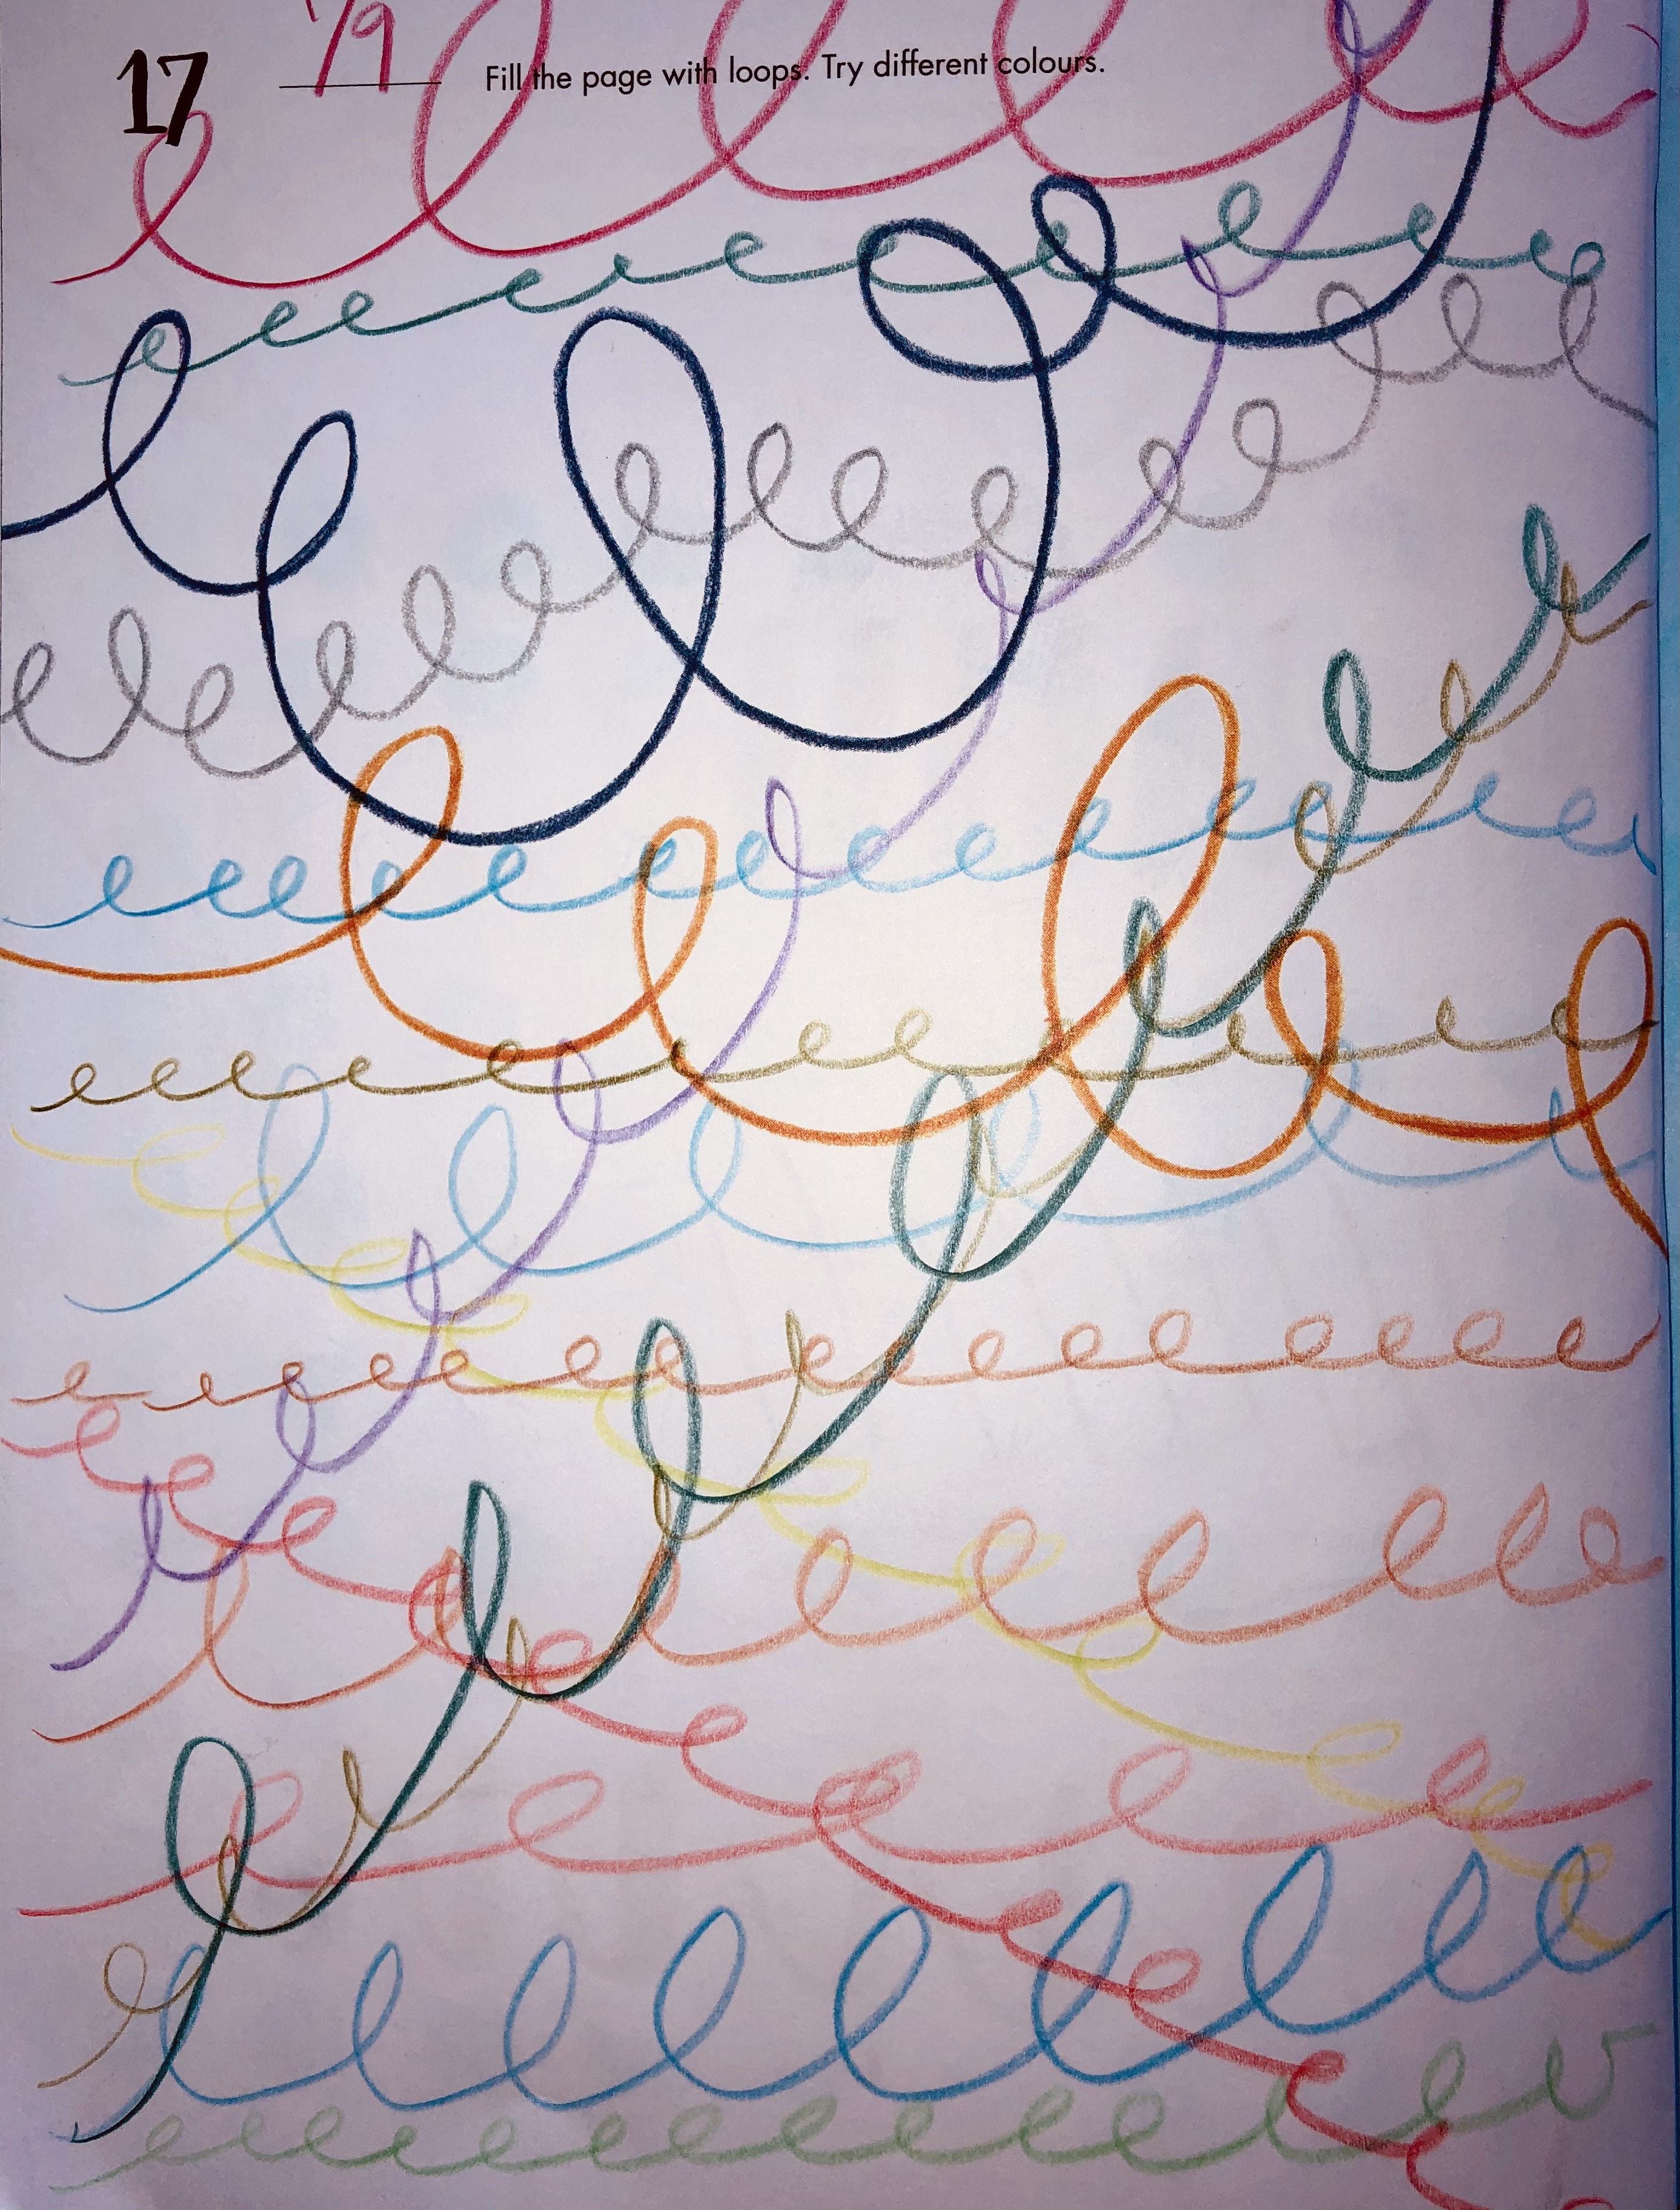 17 1/9 Fill the page with loops. Try different colours.